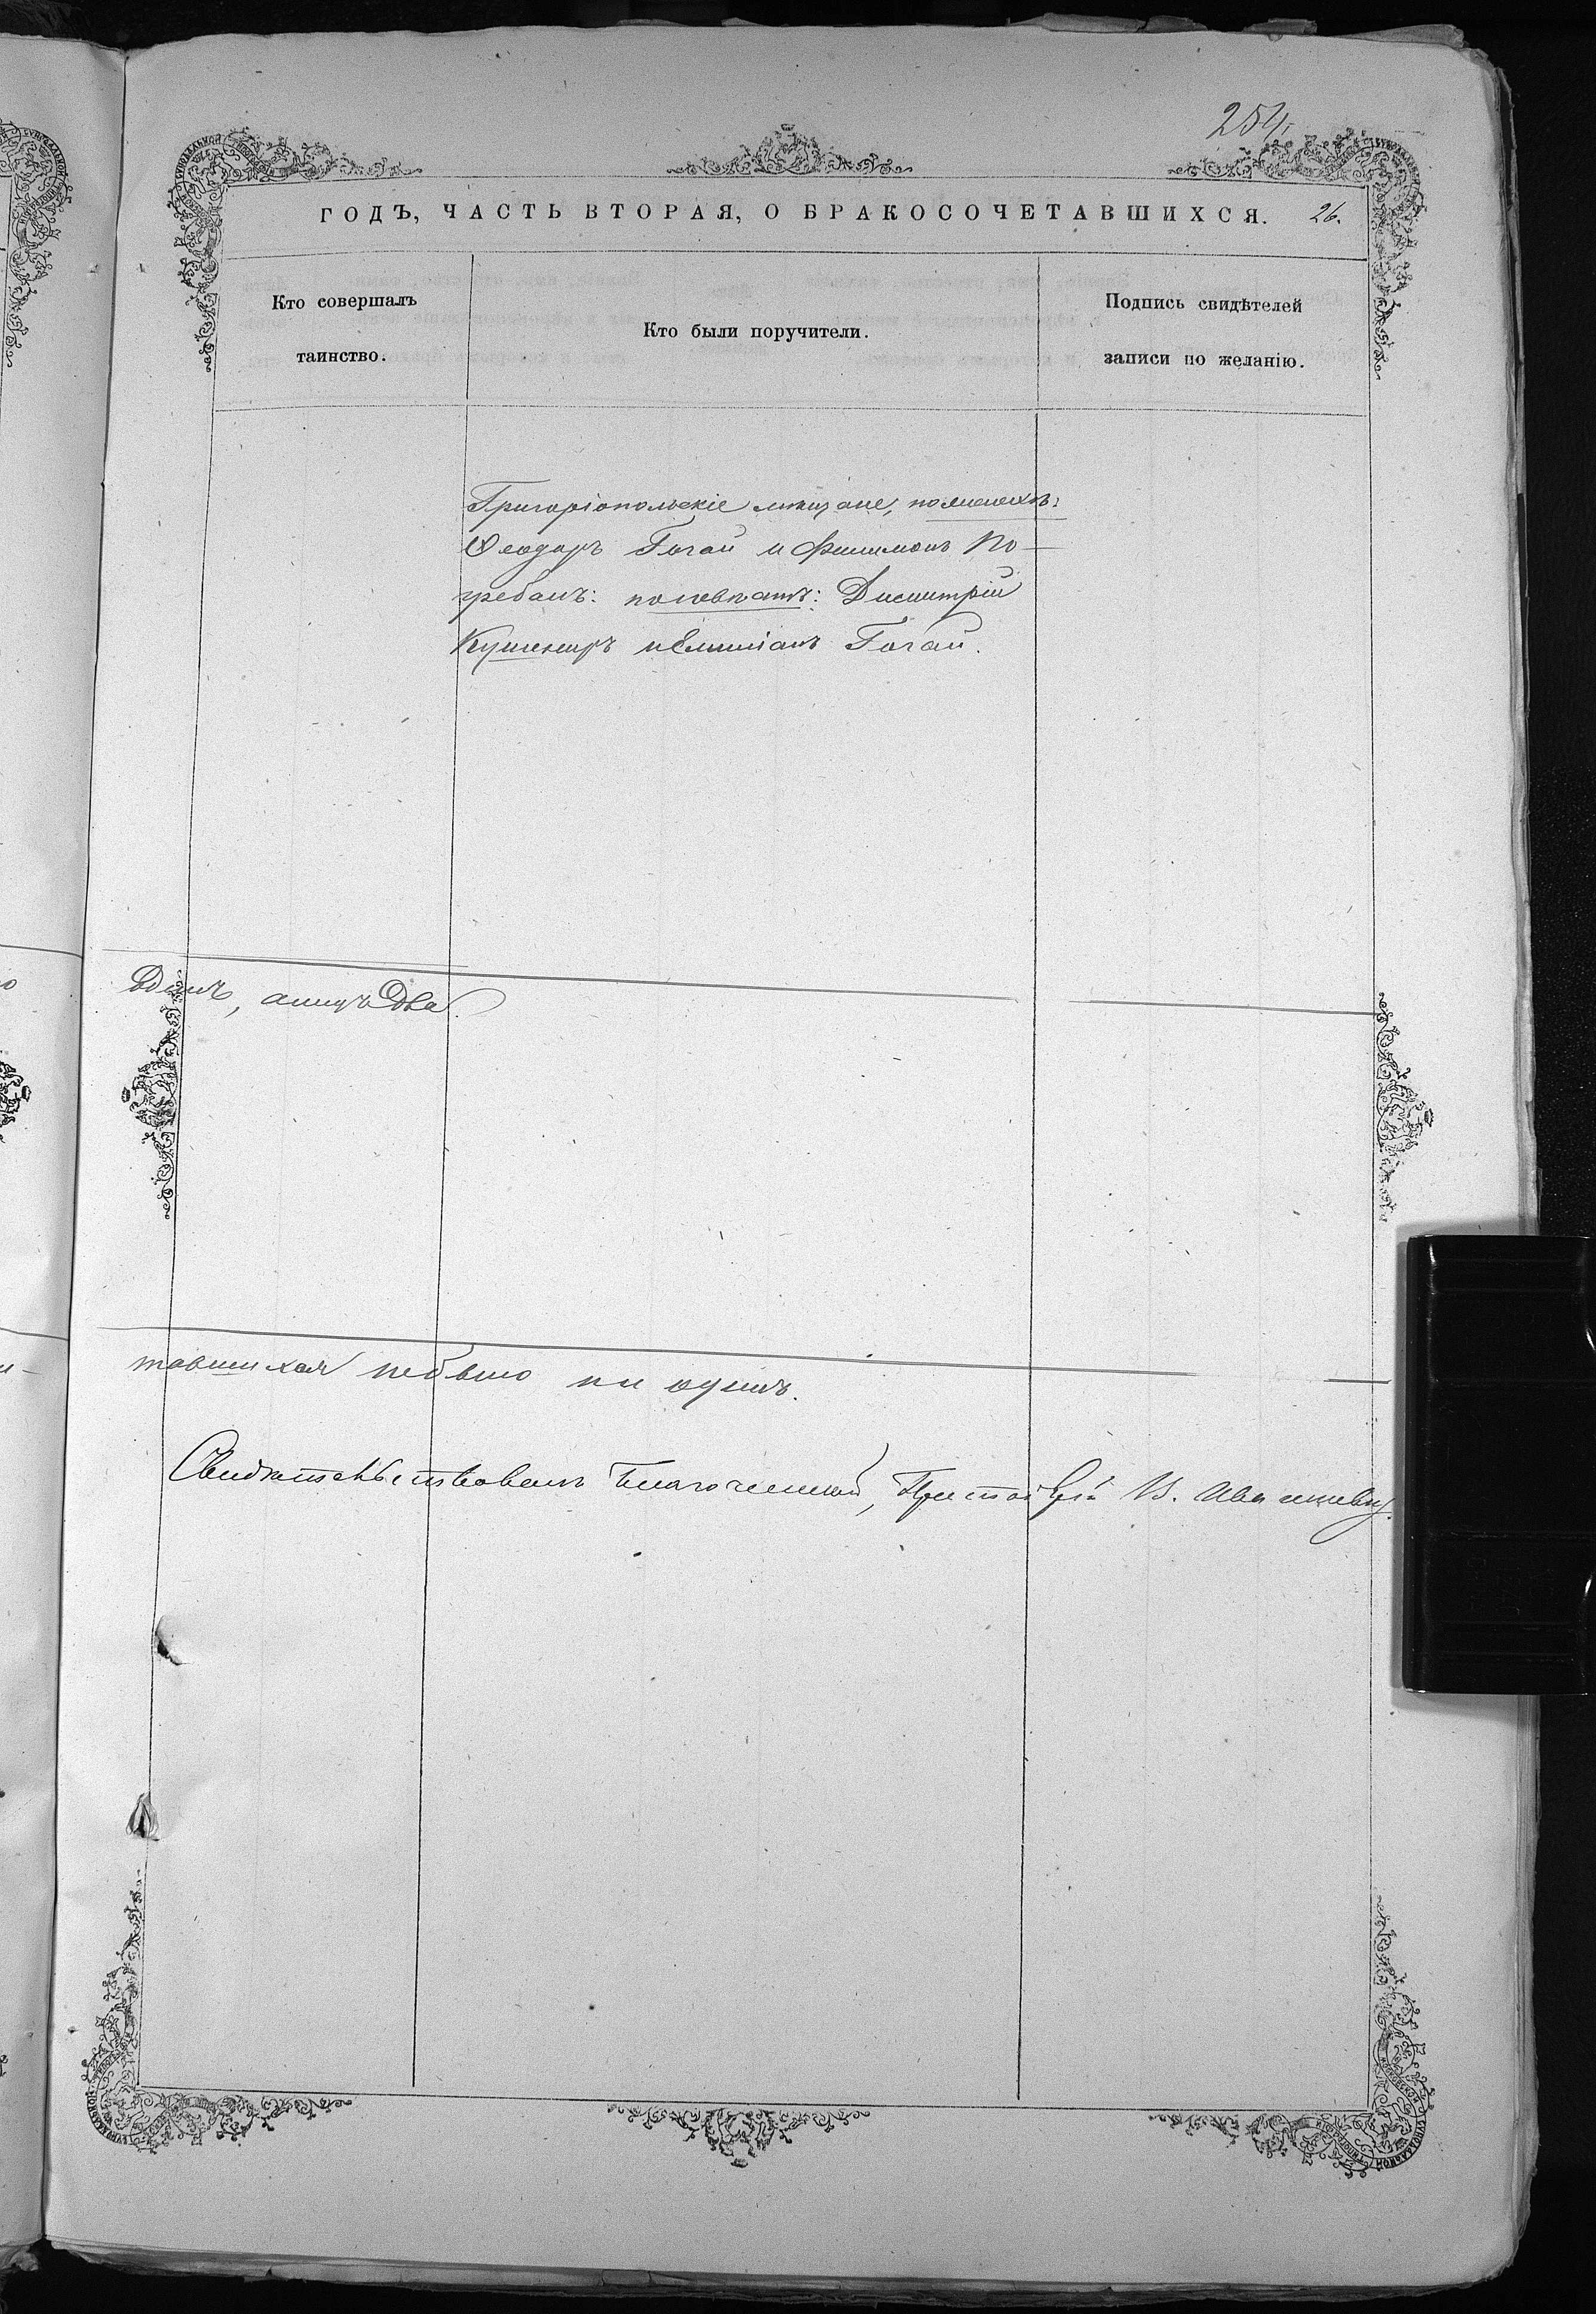 254.
ГОДЪ, ЧАСТЬ ВТОРАЯ, О БРАКОСОЧЕТАВШИХСЯ. 26.
Кто совершалъ
таинство.
Кто были поручители.
Подпись свидѣтелей
записи по желанію.
Григоріопольскіе мѣщане, по женихѣ:
Ѳеодоръ Гогай и Филимонъ По-
гребанъ: по невѣстѣ: Димитрій
Кушниръ и Емиліанъ Гогай.
, а лицъ два.
тавшихся небыло ни одинъ.
Свидѣтельствовалъ Благочинный, В.